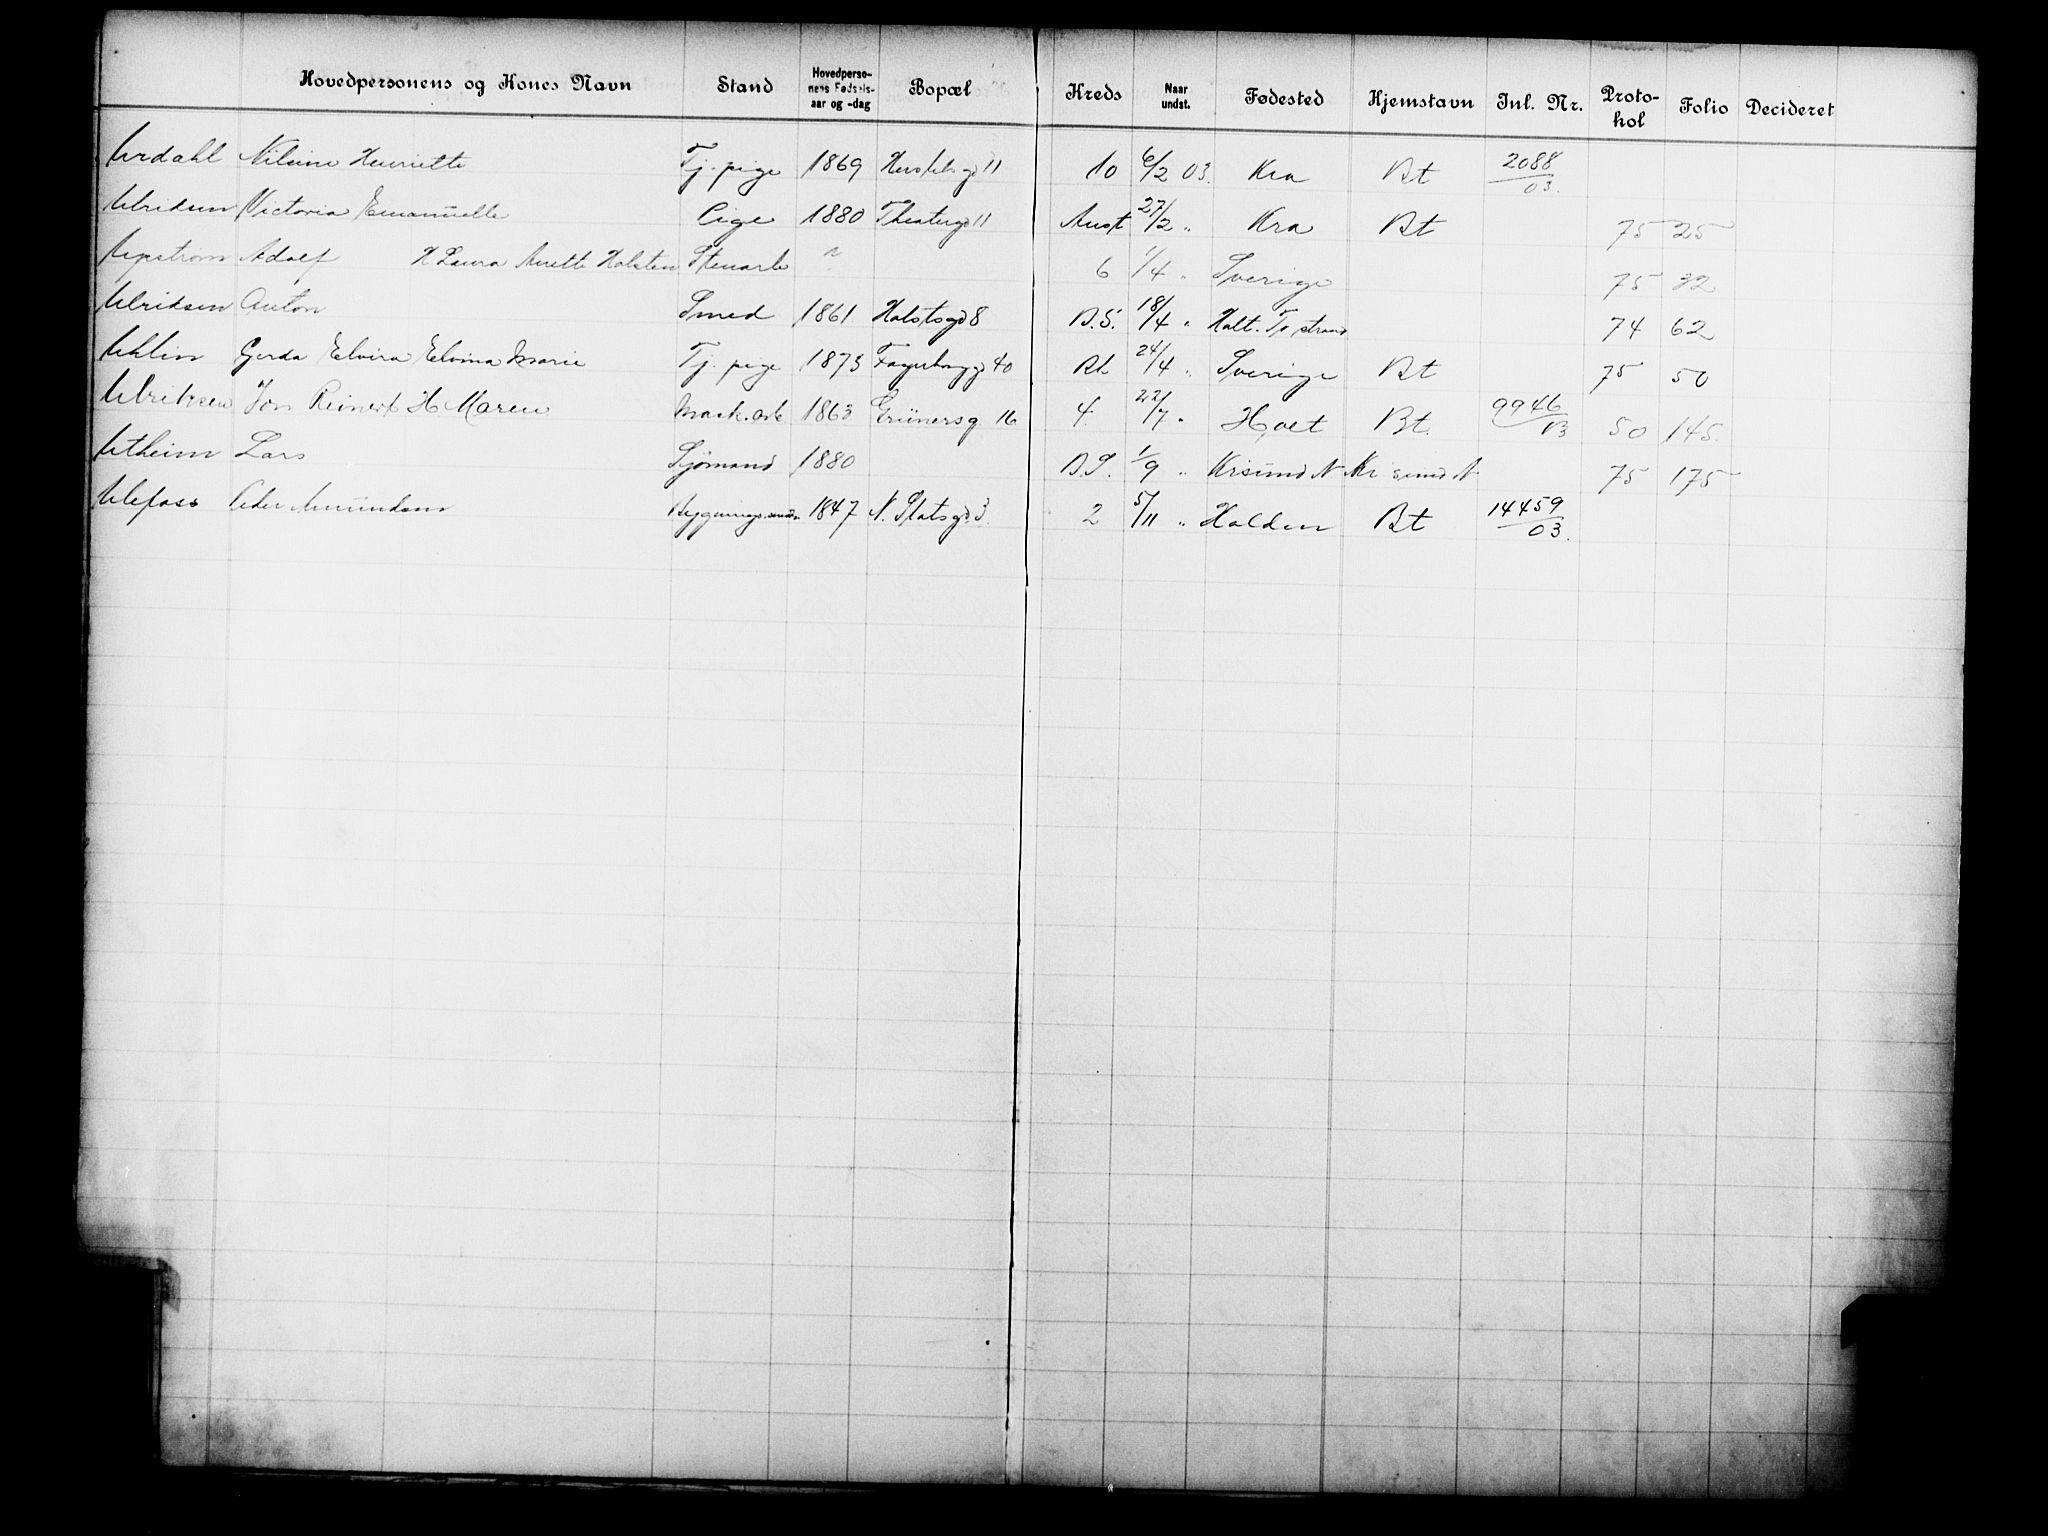 Hovedpersonens og Kones Navn Stand Hovedpersonens Fødselsaar og -dag Bopæl Kreds Naar undst. Fødested Hjemstavn Inl. Nr. Protokol Folio Decideret
Urdahl Nilsine Henriette Tj. pige 1869 11 10 6/2 03. Kra Bt 2088/03.
Ulriksen Victoria Emanuelle Pige 1880 Theatergd 11 Aust 27/2 " Kra Bt 75 25
Upström Adolf H Laura Anette Holsten Stenarb ? 6 1/4 " Sverige 75 32
Ulriksen Anton Smed 1861 Holstsgd 8 B.S. 18/4 " Holt. Tvstrand 74 62
Uhlin Gerda Elvira Elvina Marie Tj. pige 1873 Fagerborggd 40 Rh 24/4 " Sverige Bt 75 50
Ulriksen Jon Reinert H Maren Mask.arb 1863 Grünersg 16 4. 22/7 " Bt. 9946/03 50 145.
Utheim Lars Sjömand 1880 B.S. 1/9 " Krisund N Krisund N 75 175
Ulefoss Peder Amundsen 1847 N. Slotsgd 3. 2 5/11 " Halden Bt 14459/03.